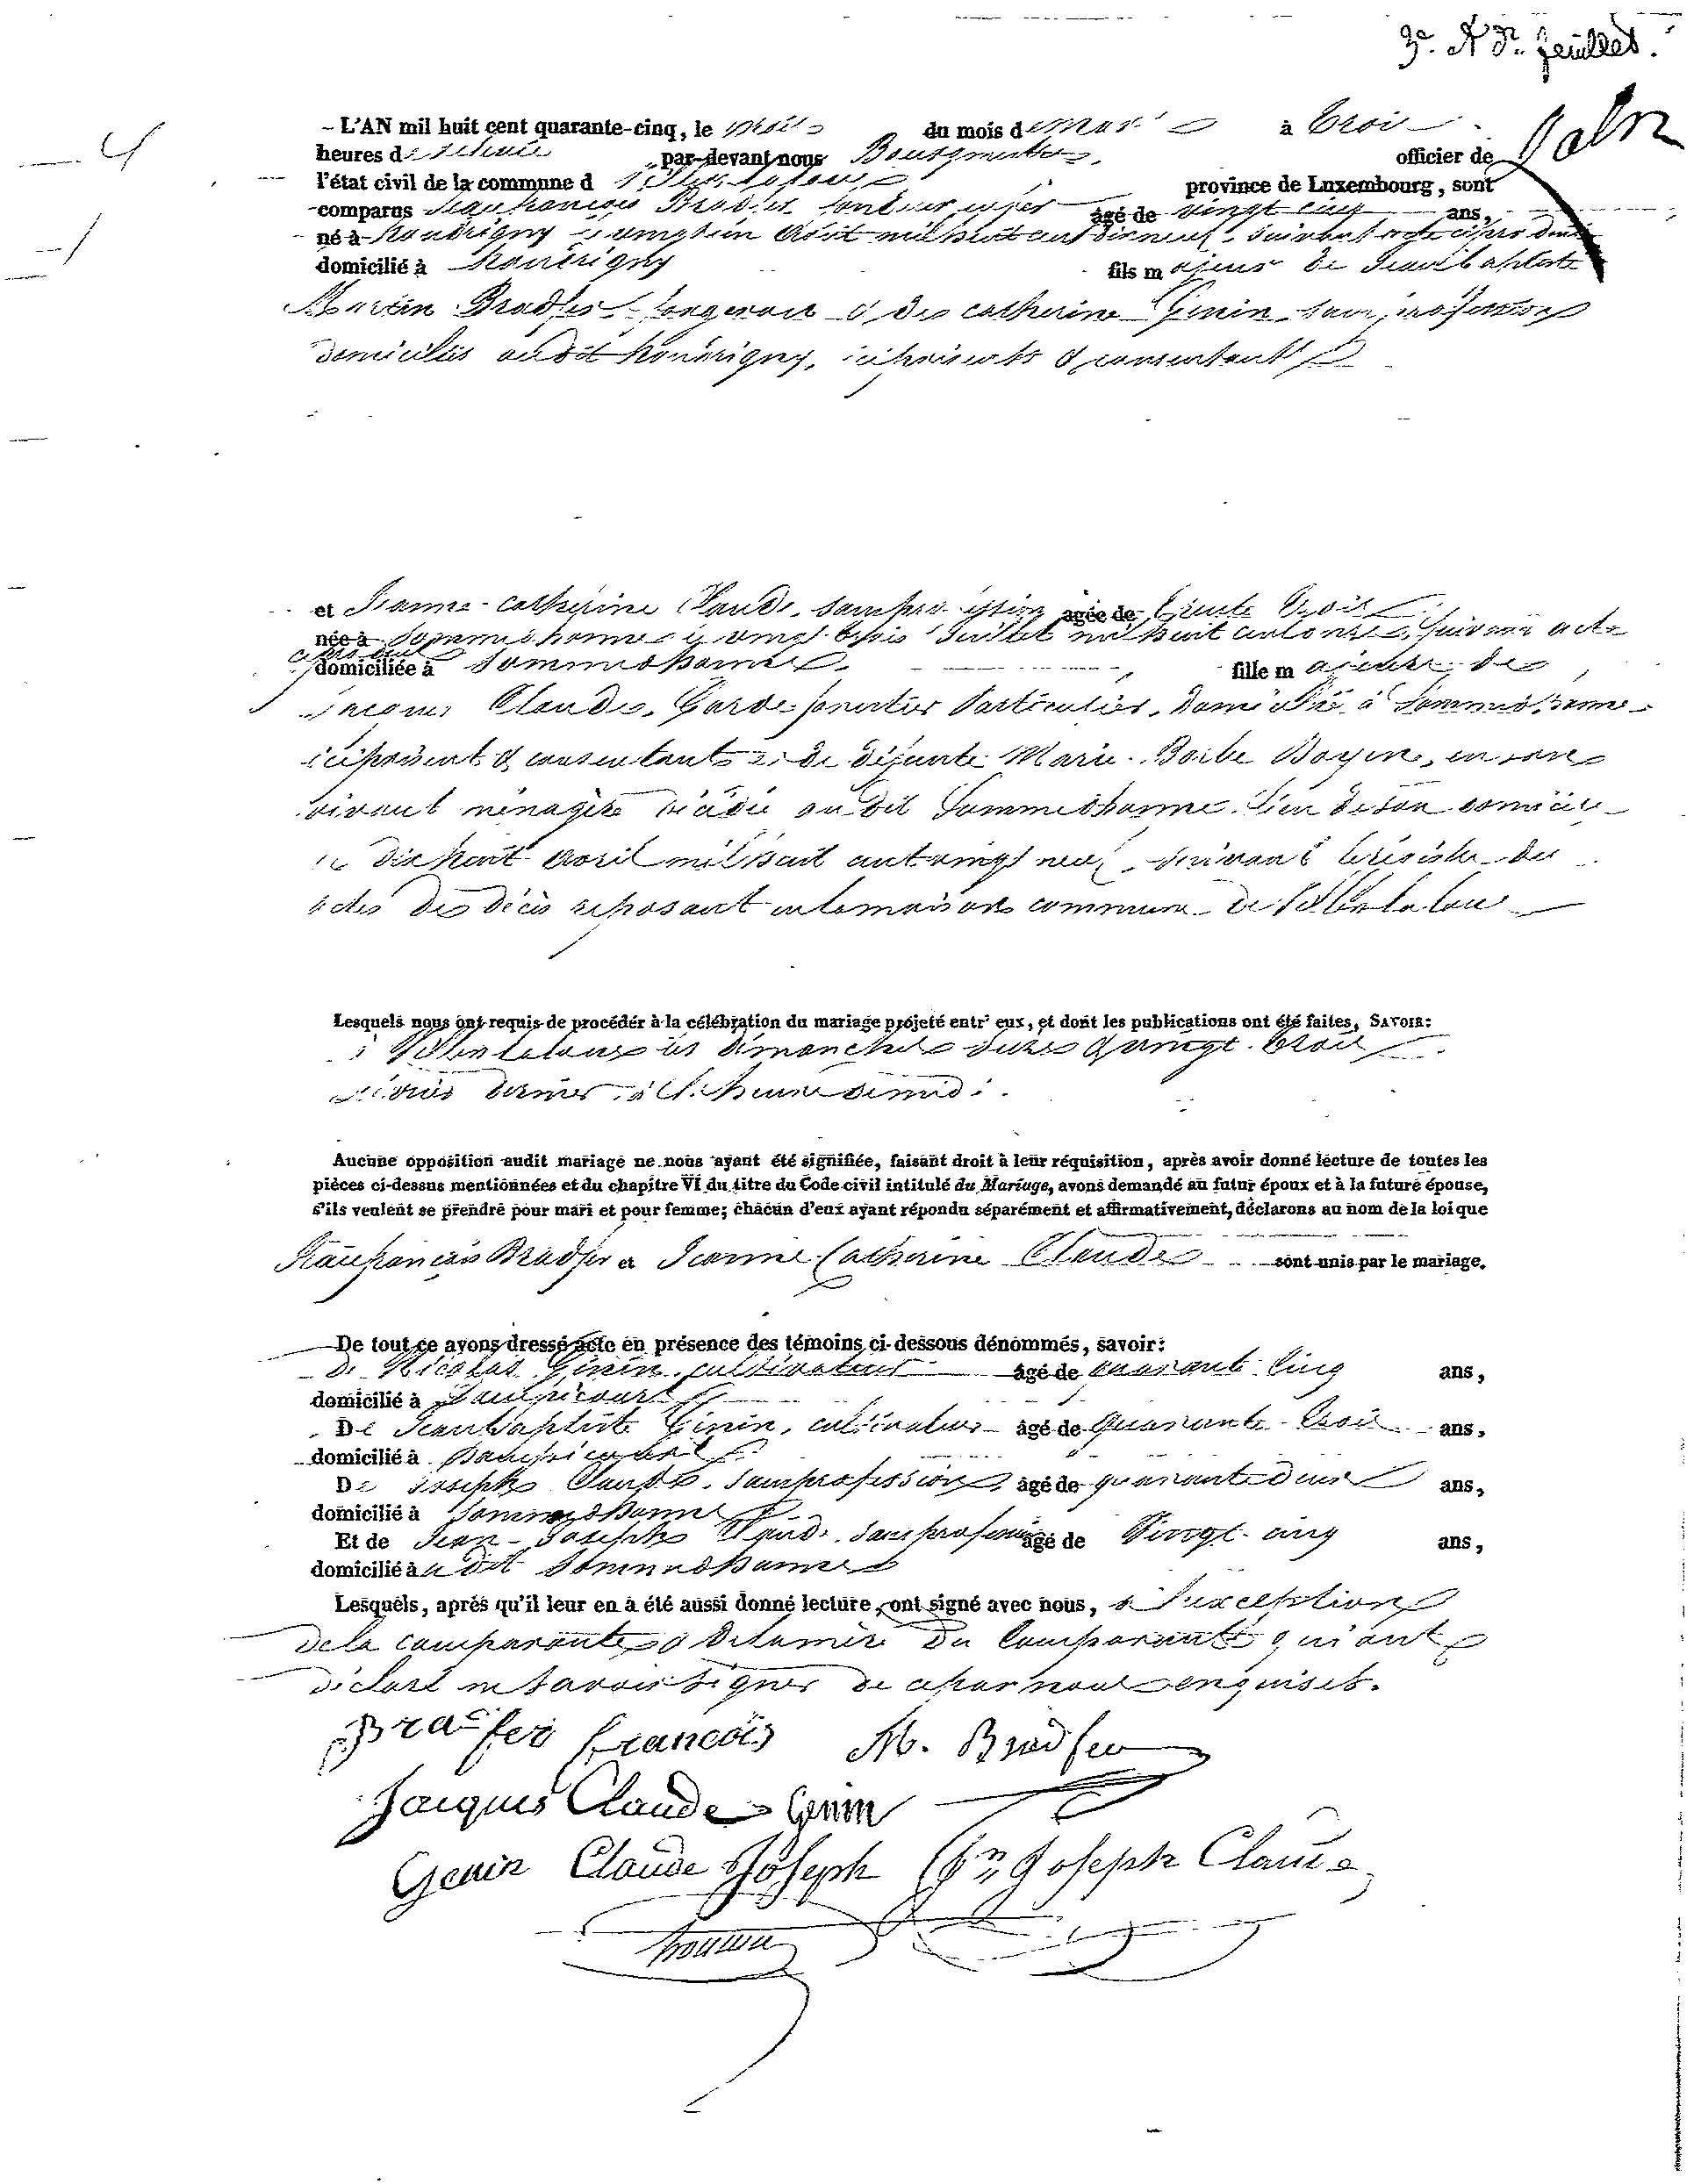 3e. & Dr. feuillet.
L'AN mil huit cent quarante-cinq, le trois du mois de mars à trois
heures de relevée par-devant nous Bourgmestre officier de
l'état civil de la commune d province de Luxembourg, sont
comparus Jean françois Bradfer âgé de vingt cinq ans,
né à houdrigny le vingt un Août mil huit cent dix neuf, suivant acte ci
domicilié à houdrigny fils majeur de Jean baptiste
Martin Bradfer forgeron & de catherine Genin sans profession
domiciliés audit houdrigny, ici présents & consentants
et Jeanne-catherine Claude, sans profession âgée de trente trois
née à Sommethonne le vingt trois Juillet mil huit cent onze, suivant acte
domiciliée à Sommethonne fille majeure de
Jacques Claude, Garde forestier Particulier, domicilié à Sommethonne
ici présent & consentant & de défunte Marie-Barbe Boyen, en son
vivant ménagère décédée audit Sommethonne lieu de son domicile
le dix huit avril mil huit cent vingt neuf, suivant le registre des
actes de décès reposant en la maison commune de Villers la loue
Lesquels nous ont requis de procéder à la célébration du mariage projeté entr' eux, et dont les publications ont été faites, SAVOIR:
à Villers la loue les dimanches seize & vingt-trois
février dernier, à l'heure de midi.
Aucune opposition audit mariage ne nous ayant été signifiée, faisant droit à leur réquisition, après avoir donné lecture de toutes les
pièces ci-dessus mentionnées et du chapitre VI du titre du Code civil intitulé du Mariage, avons demandé au futur époux et à la future épouse,
s'ils veulent se prendre pour mari et pour femme; chacun d'eux ayant répondu séparément et affirmativement, déclarons au nom de la loi que
Jean françois Bradfer et Jeanne Catherine Claude sont unis par le mariage.
De tout ce avons dressé acte en présence des témoins ci-dessous dénommés, savoir:
de Nicolas Genin, cultivateur âgé de quarante-cinq ans,
domicilié à Dampicourt
De Jean baptiste Genin, cultivateur âgé de quarante-trois ans,
domicilié à Dampicourt
De Joseph Claude, sans profession, âgé de quarante deux ans,
domicilié à Sommethonne
Et de Jean-Joseph Claude, sans profession âgé de Vingt-cinq ans,
domicilié audit Sommethonne
Lesquels, après qu'il leur en à été aussi donné lecture, ont signé avec nous, à l'exception
de la comparante & de la mère du comparant qui ont
déclaré ne savoir signer de ce par nous enquises.
Bradfer francois M. Bradfer
Jacques Claude Genin
Genin Claude Joseph Jn Joseph Claude